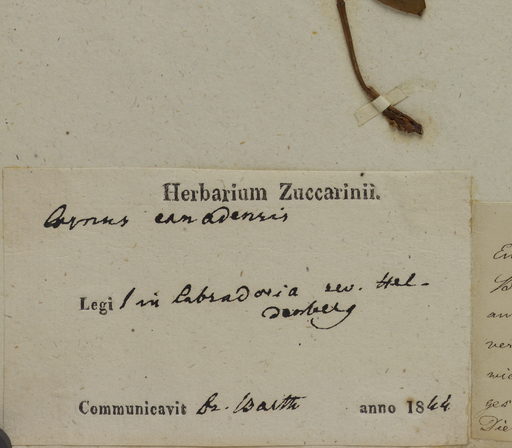 Herbarium Zuccarinii.
Cornus canadensis
Legi t in Labradoria rev. Hel-
denberg
Communicavit Dr. Barth anno 1844
an
ver
wie
ges
Die